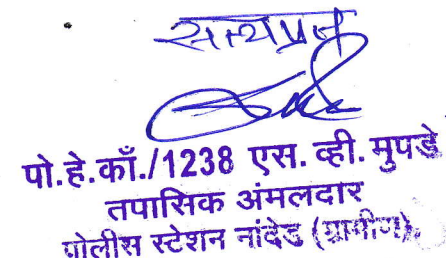 सत्यप्रत
पो.हे.काँ./1238 एस. व्ही. मुपडे
तपासिक अंमलदार
पोलीस स्टेशन नांदेड (ग्रामीण).